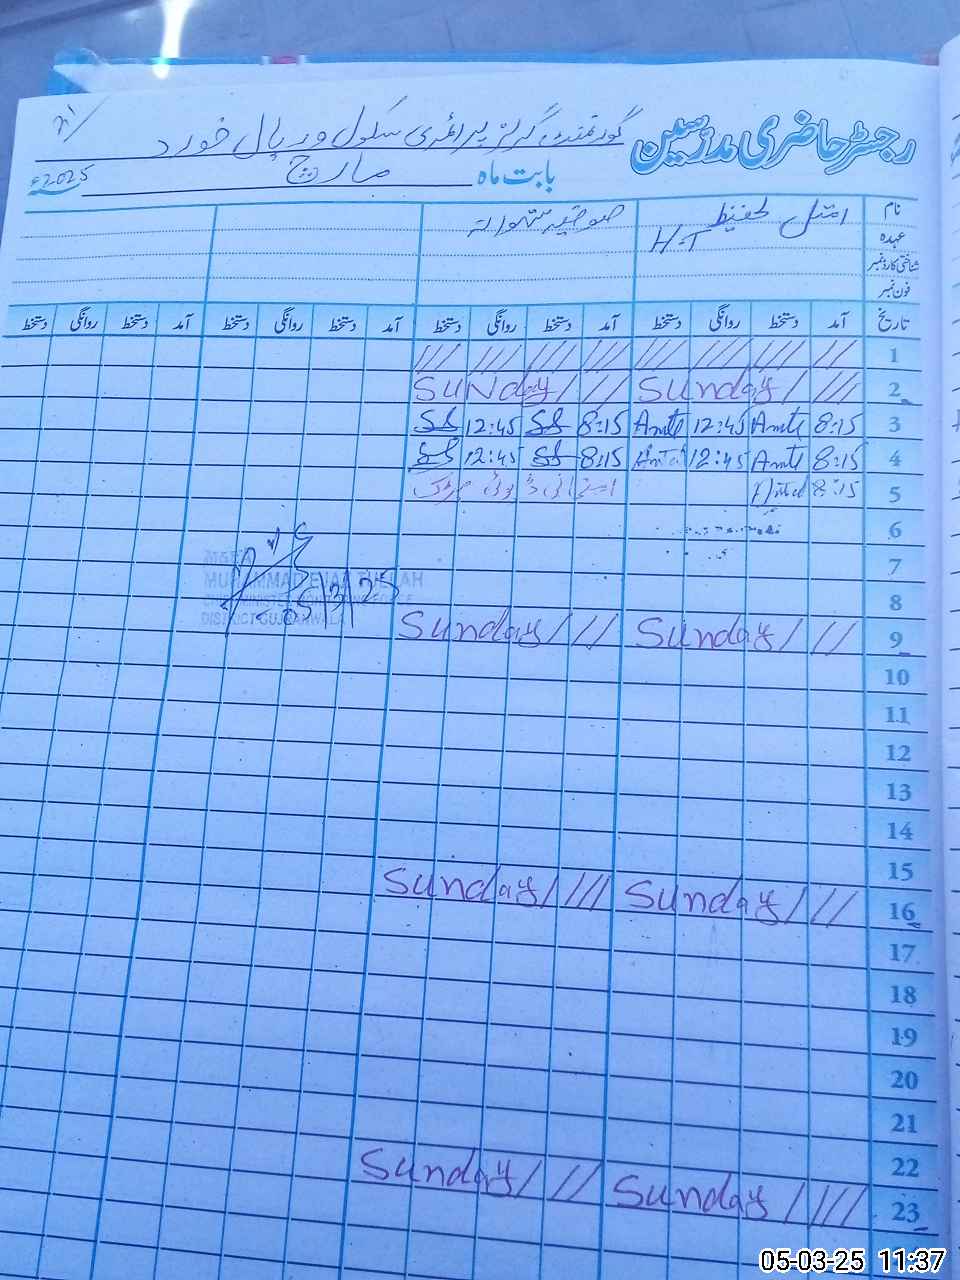 رجسٹر حاضری مدرسین گورنمنٹ گرلز پرائمری سکول ورپال خورد
بابت ماہ مارچ 2025ء
نام امتل حفیظ
عہدہ H.T
شناختی کارڈ نمبر
فون نمبر
تاریخ آمد دستخط روانگی دستخط آمد دستخط روانگی دستخط آمد دستخط روانگی دستخط آمد دستخط روانگی دستخط
1
2 Sunday Sunday
3 8:15 Amte 12:45 Amte 8:15 SS 12:45 SS
4 8:15 Amte 12:45 Amte 8:15 SS 12:45 SS
5 8:15
6
7
8
9 Sunday Sunday
10
11
12
13
14
15
16 Sunday Sunday
17
18
19
20
21
22
23 Sunday Sunday
MUHAMMAD
DISTRICT GUJRANWALA
05/3/25
05-03-25 11:37